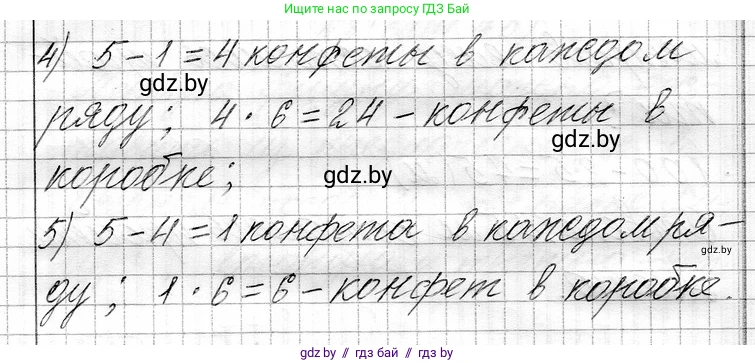 Ищите нас по запросу ГДЗ Бай
4) 5-1=4 конфеты в каждом
gdz.by
ряду; 4·6=24 - конфеты в
gdz.by
коробке;
gdz.by
5) 5-4=1 конфета в каждом ря-
gdz.by
ду; 1·6=6 - конфет в коробке.
gdz.by // gdz.by // gdz.by